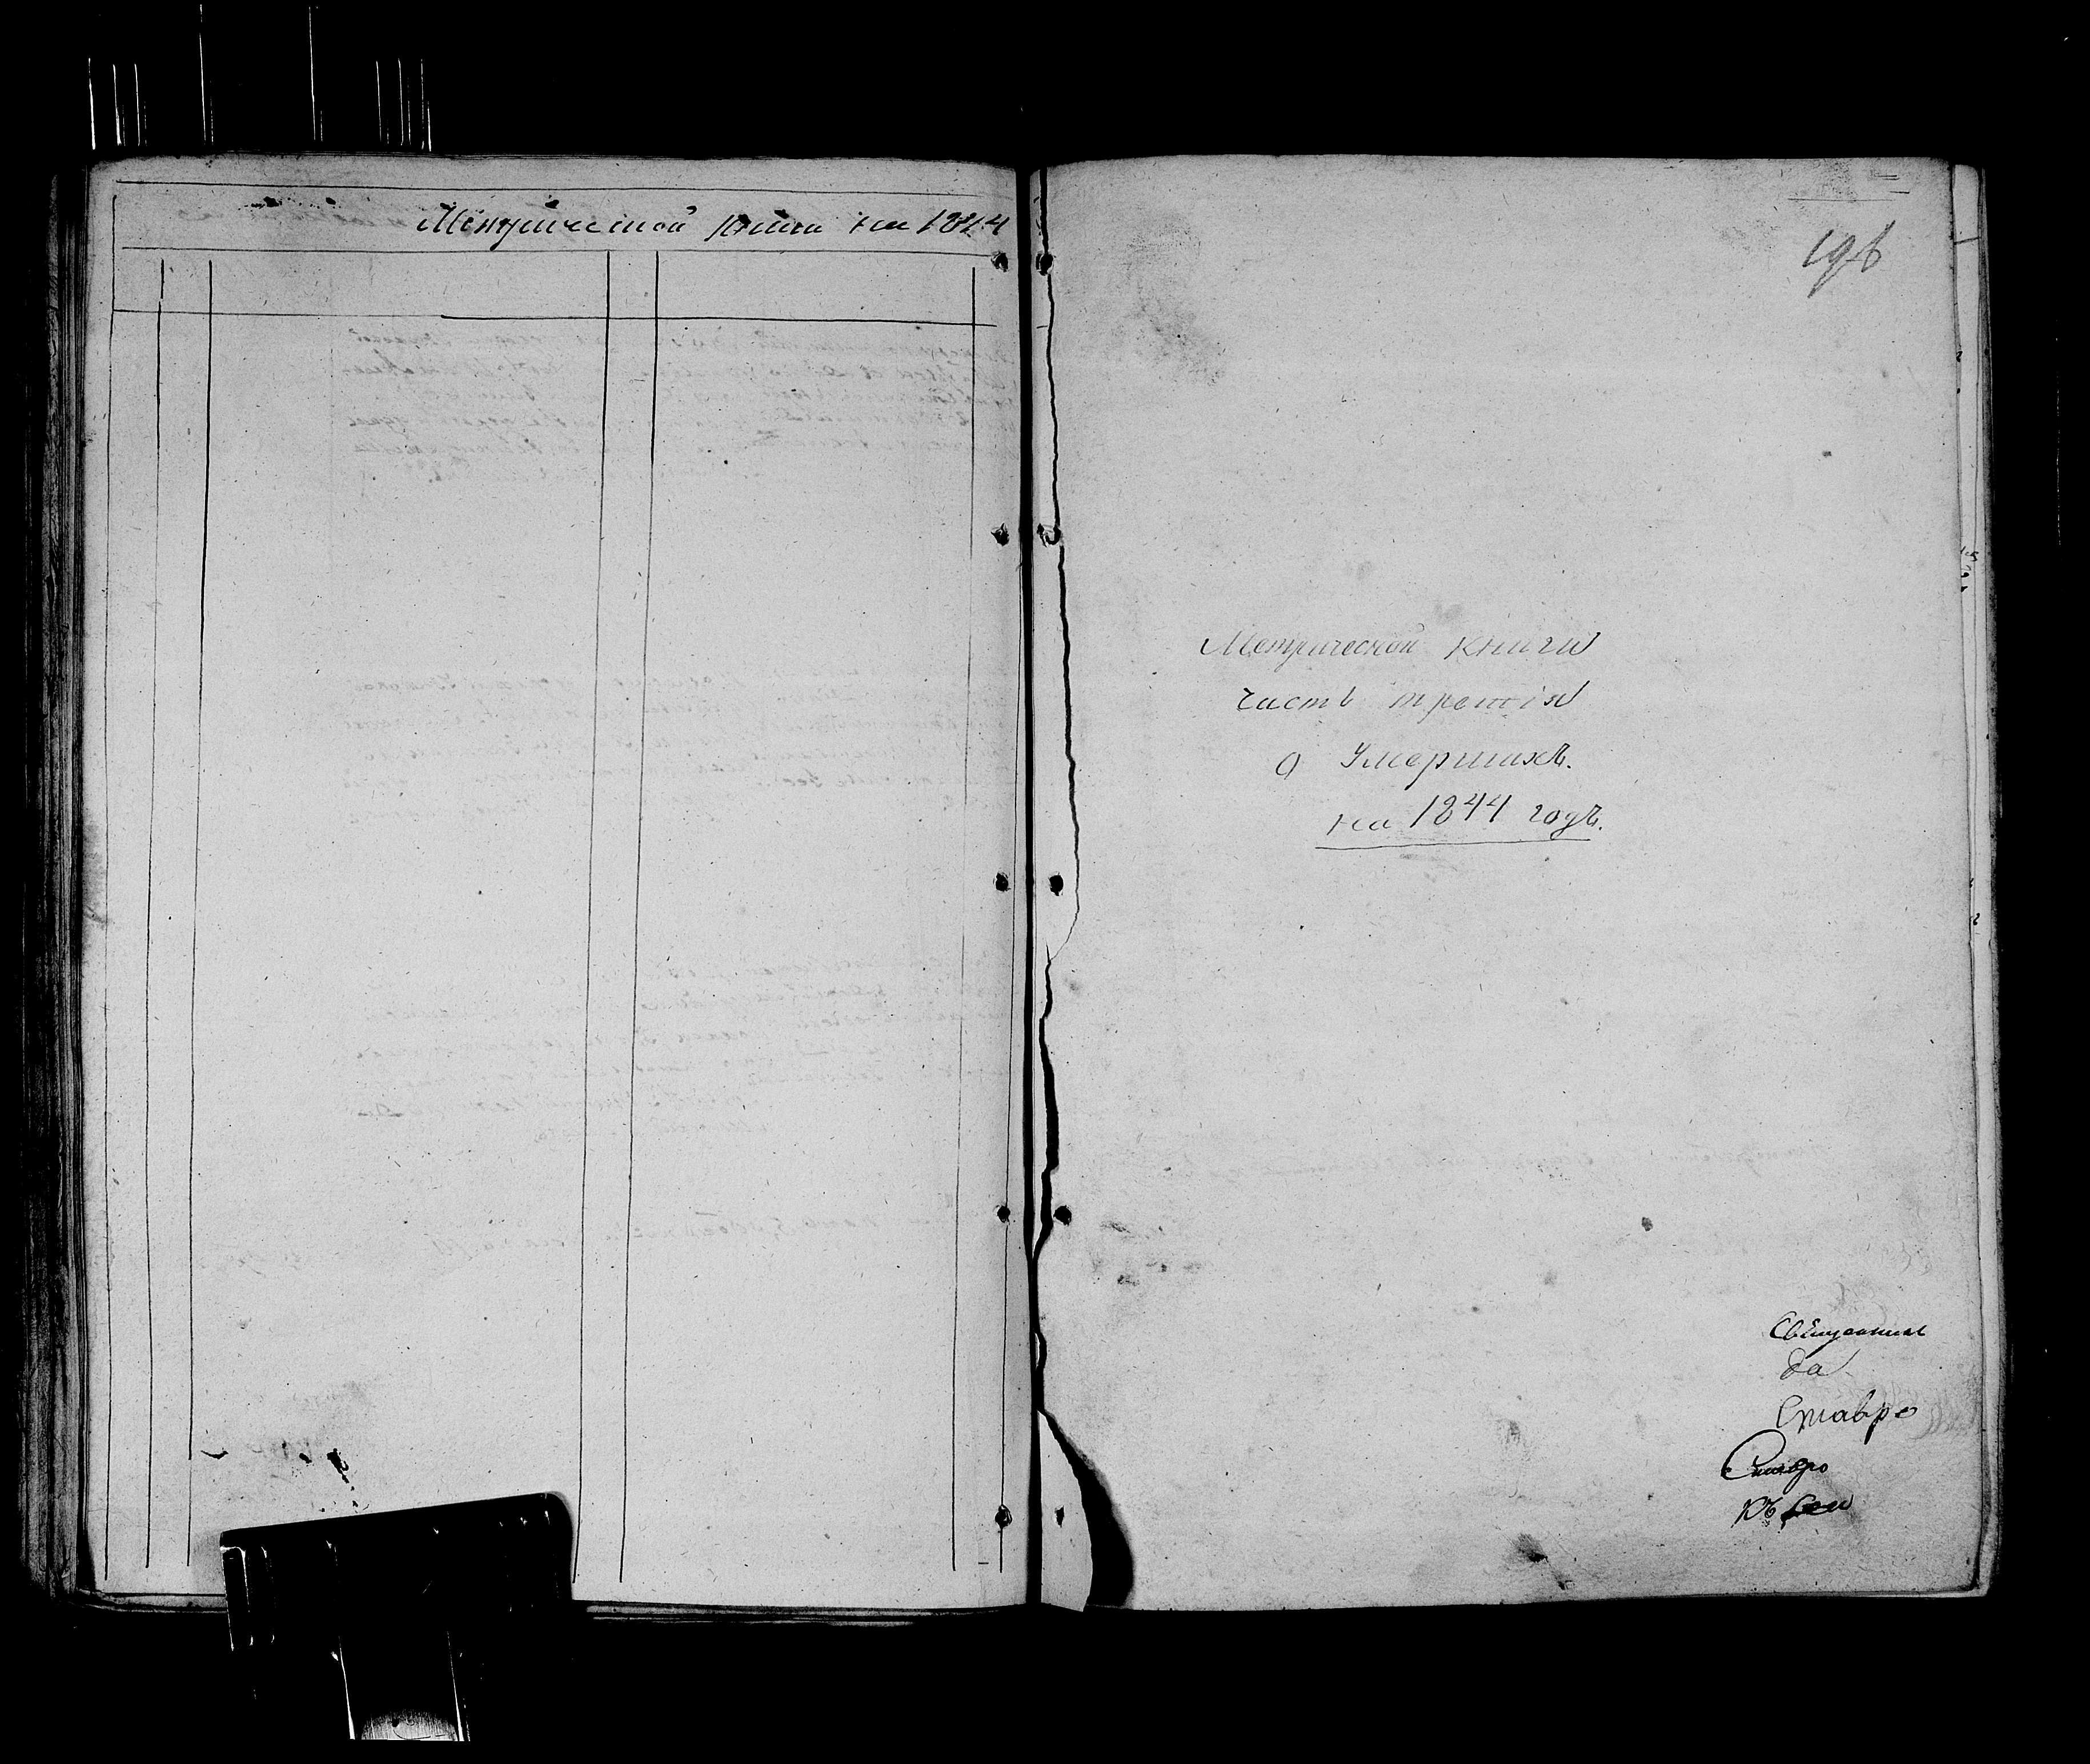 Метрической книги на 1844
196
Метрической книги
часть третія
о Умершихъ.
на 1844 годъ.
да
Ставро
Ставро
къ